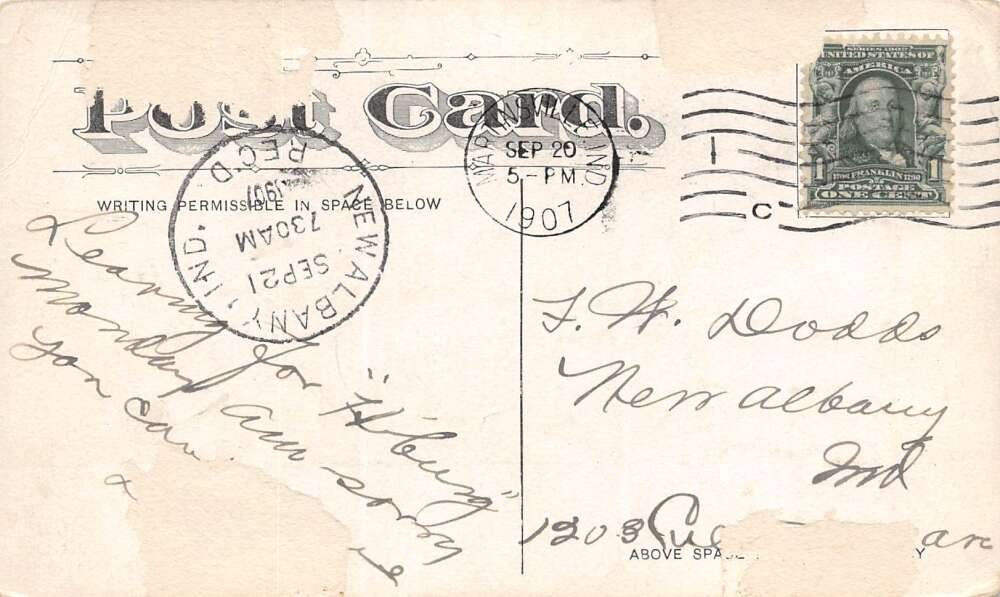 Post Card.
WRITING PERMISSIBLE IN SPACE BELOW
MARTINSVILLE, IND.
SEP 20
5-PM
1907
C
SERIES 1902
UNITED STATES OF
AMERICA
1 1
1706 FRANKLIN 1790
POSTAGE
ONE CENT
NEW ALBANY, IND.
SEP 21
730AM
1907
REC'D
Leaving for "H'burg"
Monday am sorry
can
F. W. Dodds
New Albany
Ind
1203 ave
ABOVE